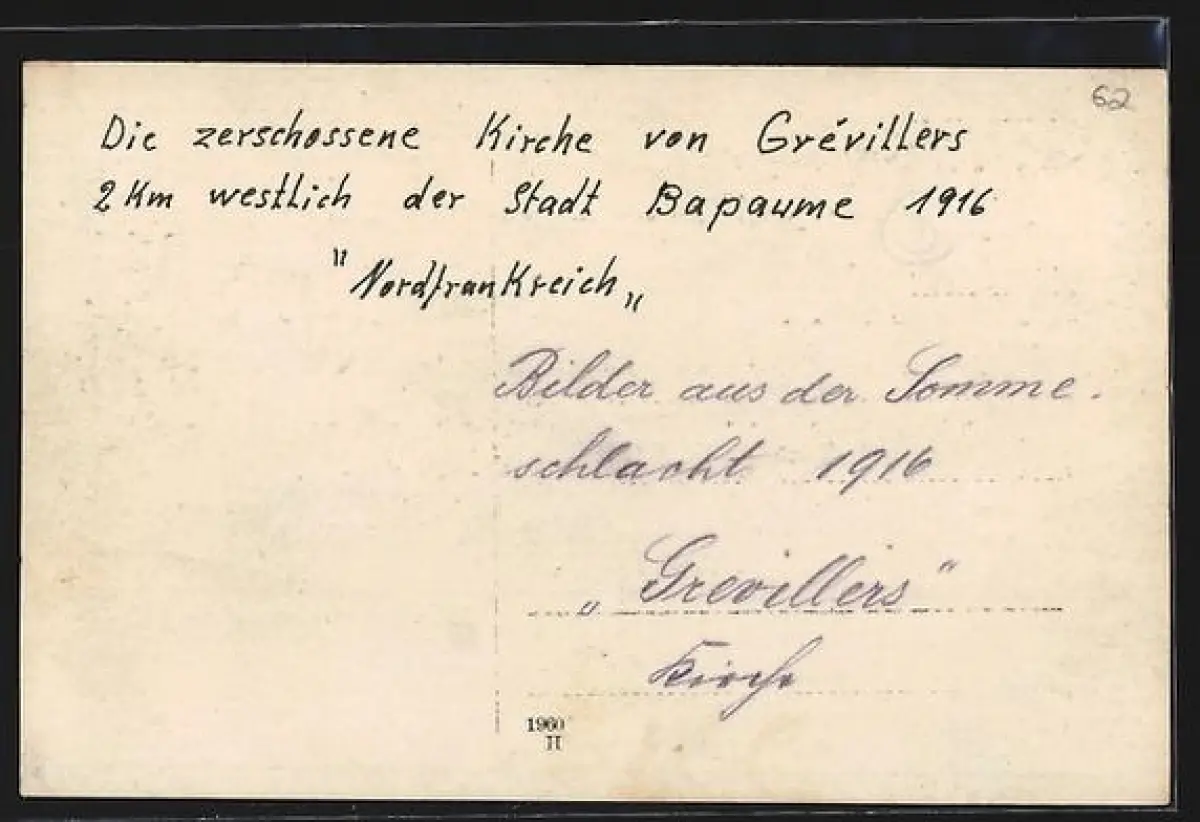 62
Die zerschossene Kirche von Grévillers
2 Km westlich der Stadt Bapaume 1916
"Nordfrankreich„
Bilder aus der Somme-
schlacht 1916
„Grevillers"
Kirche
1960
II